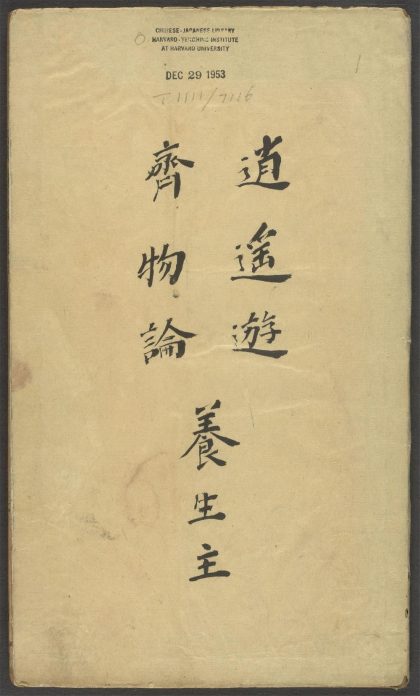 CHINESE-JAPANESE LIBRARY
HARVARD-YENCHING INSTITUTE
AT HARVARD UNIVERSITY
DEC 29 1953
逍遙遊
齊物論
養生主